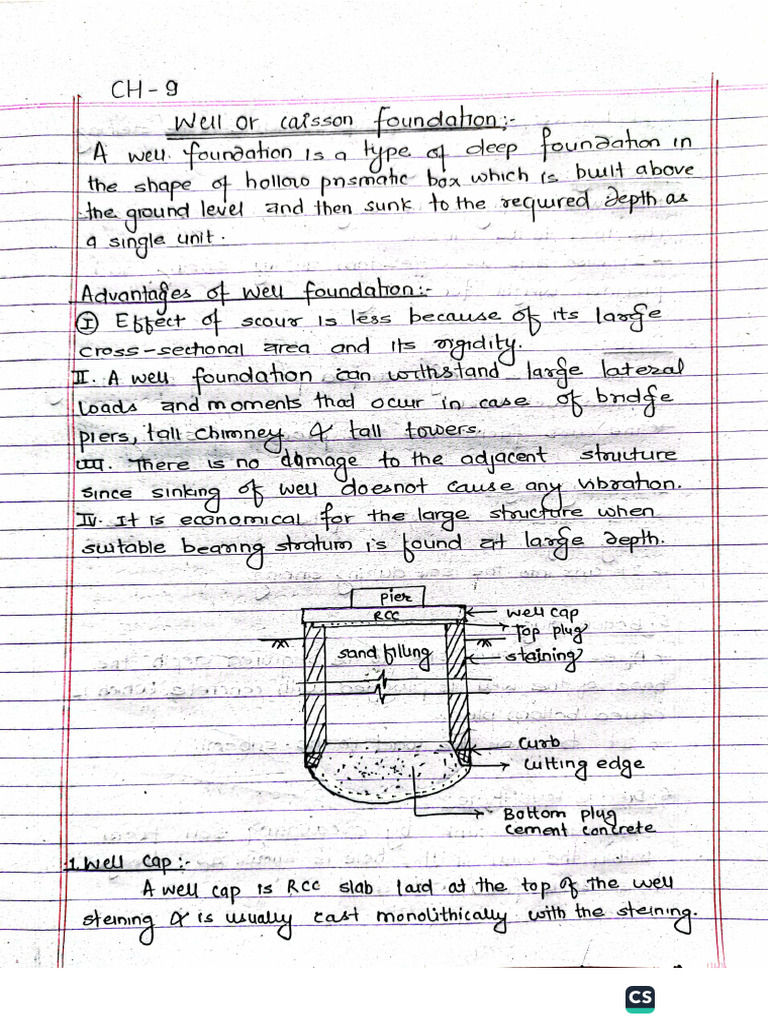 CH - 9
Well or caisson foundation:-
A well foundation is a type of deep foundation in
the shape of hollow prismatic box which is built above
the ground level and then sunk to the required depth as
a single unit.
Advantages of well foundation:-
I Effect of scour is less because of its large
cross-sectional area and its rigidity.
II. A well foundation can withstand large lateral
loads and moments that ocur in case of bridge
piers, tall chimney & tall towers.
III. There is no damage to the adjacent structure
since sinking of well doesnot cause any vibration.
IV. It is economical for the large structure when
suitable bearing stratum is found at large depth.
Pier
RCC
well cap
Top plug
sand filling
staining
curb
cutting edge
Bottom plug
cement concrete
1. Well cap :-
A well cap is RCC slab laid at the top of the well
steining & is usually cast monolithically with the steining.
CS